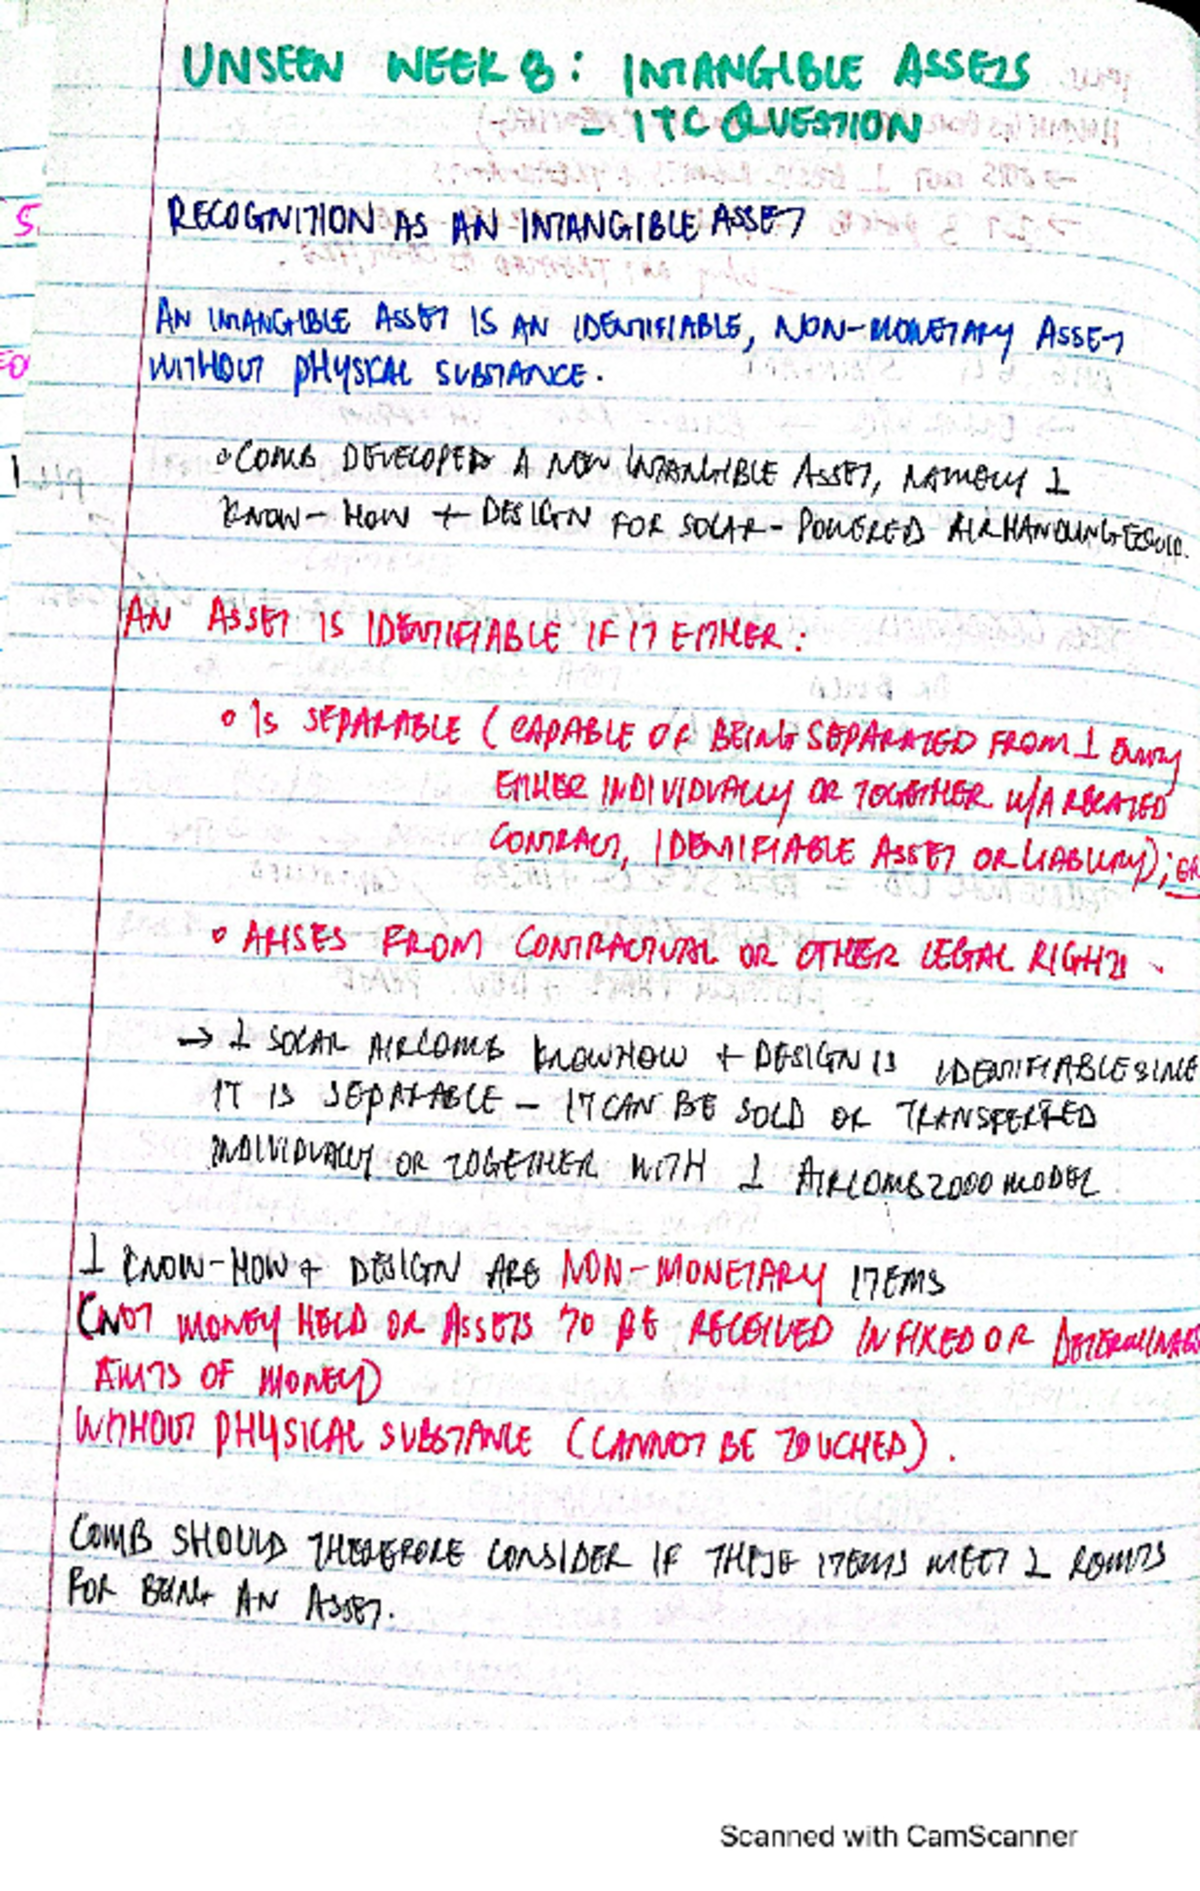 UNSEEN WEEK 8: INTANGIBLE ASSETS
- ITC QUESTION
S.
RECOGNITION AS AN INTANGIBLE ASSET
AN INTANGIBLE ASSET IS AN IDENTIFIABLE, NON-MONETARY ASSET
WITHOUT PHYSICAL SUBSTANCE.
• COMB DEVELOPED A NEW INTANGIBLE ASSET, NAMELY ⊥
KNOW-HOW + DESIGN FOR SOLAR-POWERED AIRHANDLING EQUIP.
AN ASSET IS IDENTIFIABLE IF IT EITHER:
• IS SEPARABLE (CAPABLE OF BEING SEPARATED FROM ⊥ ENTITY
EITHER INDIVIDUALLY OR TOGETHER W/A RELATED
CONTRACT, IDENTIFIABLE ASSET OR LIABILITY); OR
• ARISES FROM CONTRACTUAL OR OTHER LEGAL RIGHTS.
→ ⊥ SOLAR AIRCOMB KNOWHOW + DESIGN IS IDENTIFIABLE SINCE
IT IS SEPARABLE - IT CAN BE SOLD OR TRANSFERRED
INDIVIDUALLY OR TOGETHER WITH ⊥ AIRCOMB2000 MODEL
⊥ KNOW-HOW + DESIGN ARE NON-MONETARY ITEMS
(NOT MONEY HELD OR ASSETS TO BE RECEIVED IN FIXED OR DETERMINABLE
AMTS OF MONEY)
WITHOUT PHYSICAL SUBSTANCE (CANNOT BE TOUCHED).
COMB SHOULD THEREFORE CONSIDER IF THESE ITEMS MEET ⊥ RQMTS
FOR BEING AN ASSET.
Scanned with CamScanner